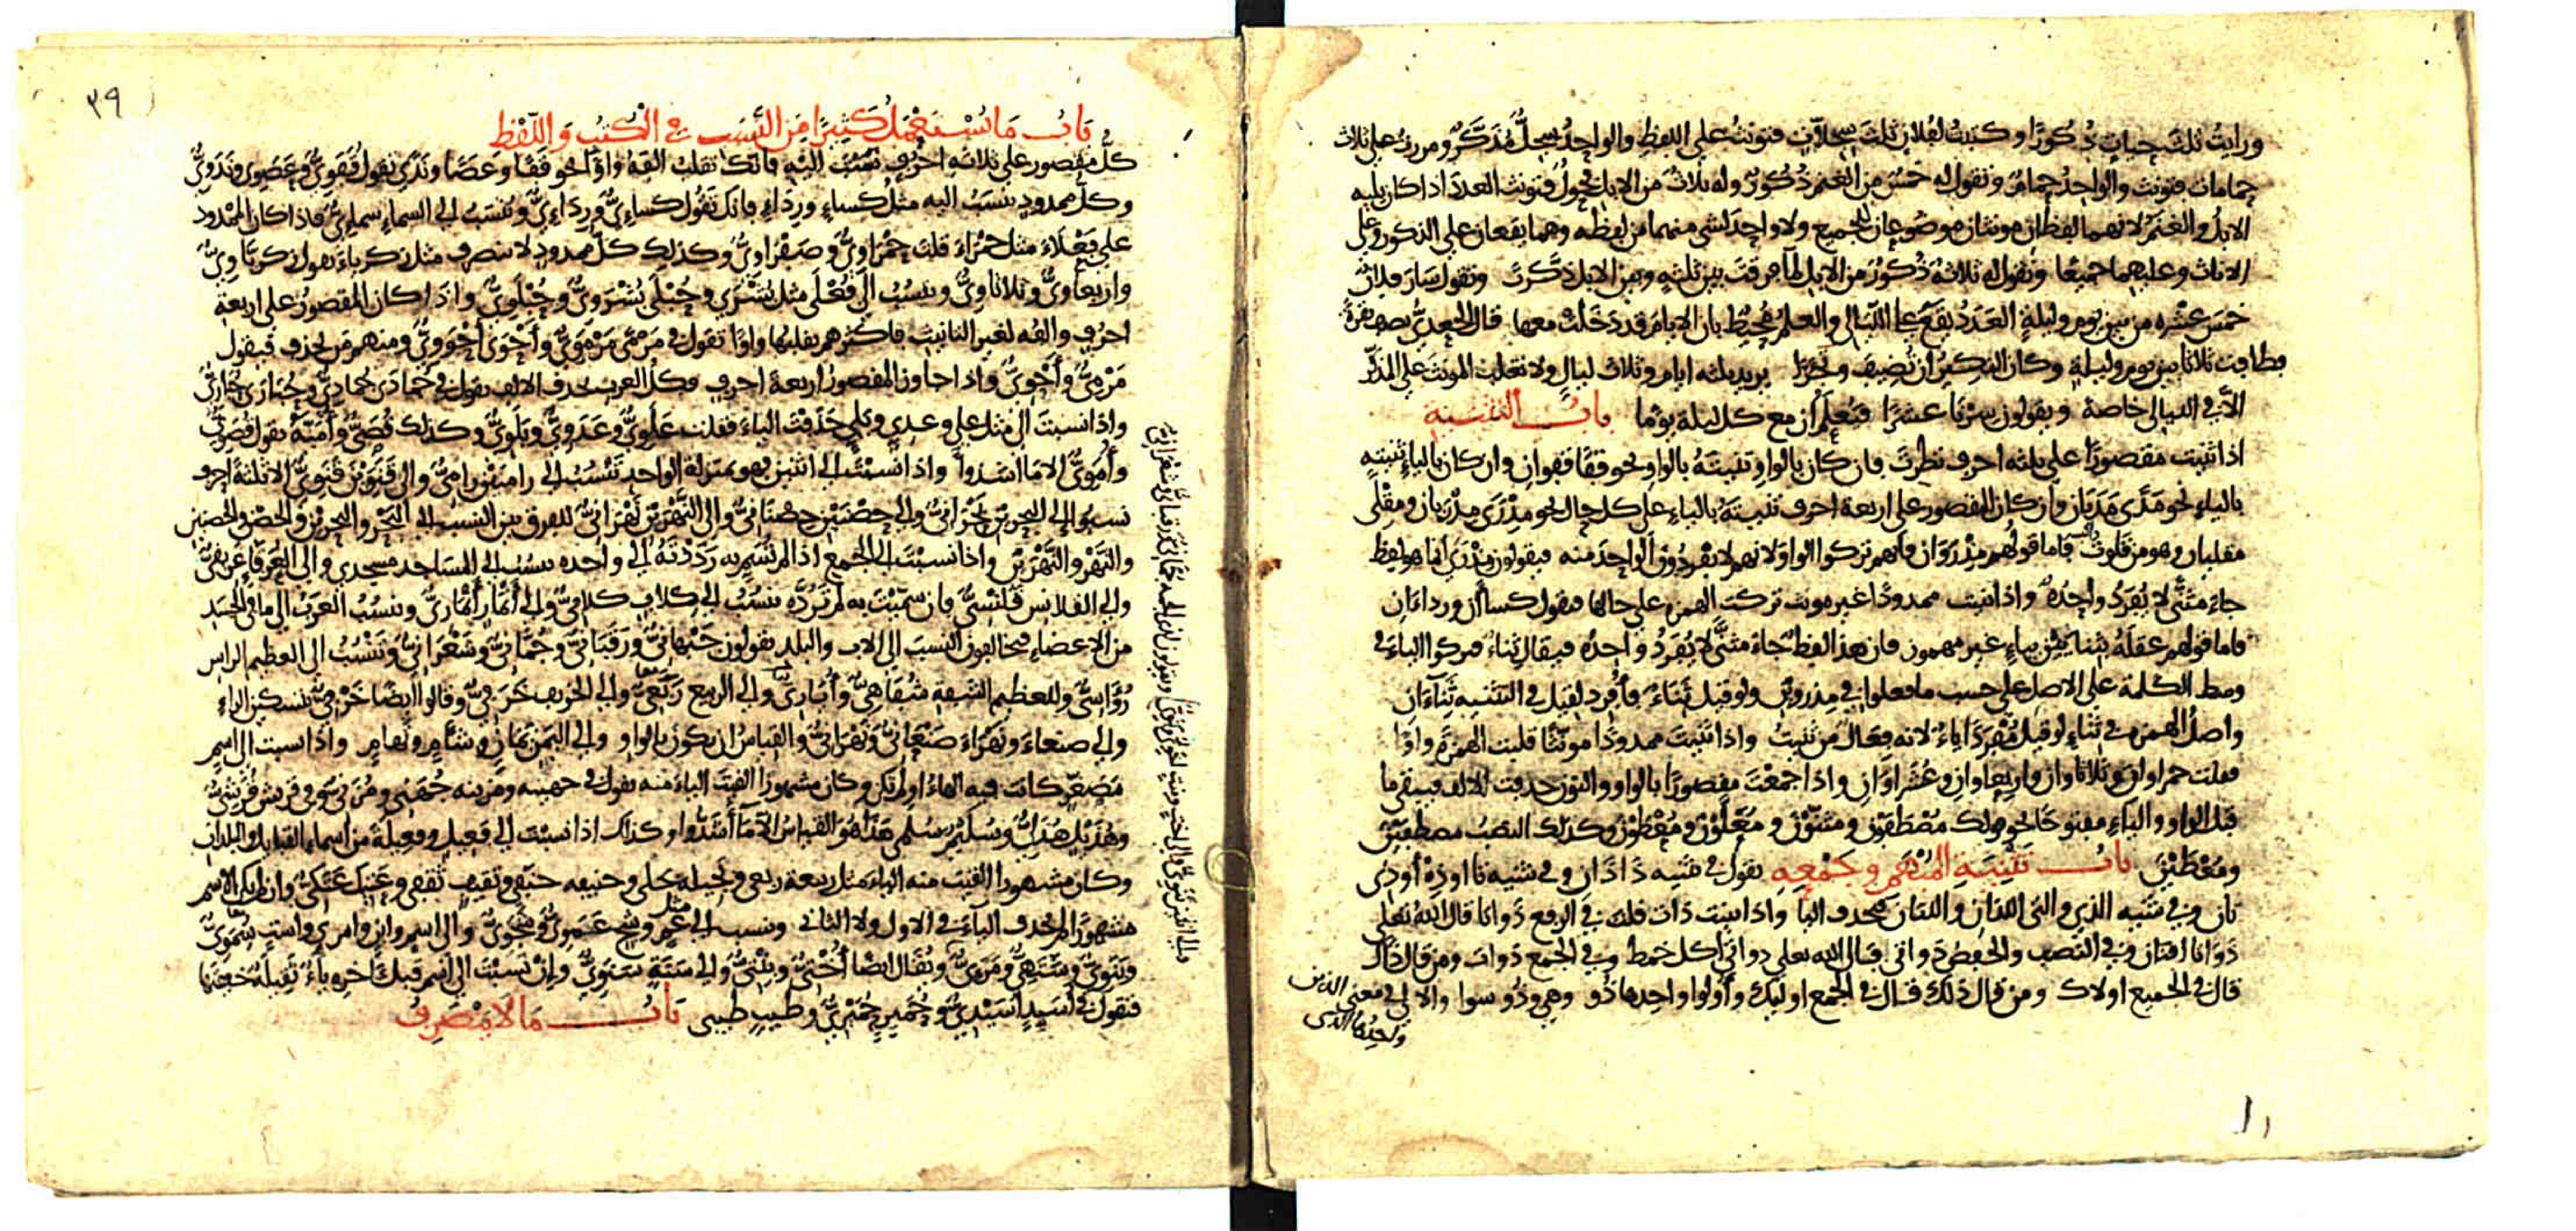 ورايت ثلث حيات ذكورا وكتبت لفلان ثلث سجلات فتونث على اللفظ والواحد سجل مذكر ومررت على ثلاث
حمامات فتونث والواحد حمام وتقول له خمس من الغنم ذكور وله ثلاث من الابل فحول فتونث العدد اذا كان يليه
الابل والغنم لانهما لفظان مونثان موضوعان للجميع ولا واحد لشي منهما من لفظه وهما يقعان على الذكور وعلى
الاناث وعليهما جميعا وتقول له ثلاثة ذكور من الابل لما فرقت بين ثلثه وبين الابل ذكرت وتقول سار فلان
خمس عشره من بين يوم وليلة العدد يقع على الليالي والعلم محيط بان الايام قد دخلت معها قال الجعدي يصف بقرة
فطافت ثلاثا بين يوم وليلة وكان النكير ان تضيف وتجارا يريد ثلثه ايام وثلاث ليال ولا تغلب المونث على المذكر
الا في الليالي خاصة ويقولون سرنا عشرا فيعلم ان مع كل ليلة يوما باب التثنية
اذا ثنيت مقصورا على ثلثه احرف نظرت فان كان بالواو ثنيته بالواو نحو قفا قفوان وان كان بالياء ثنيته
بالياء نحو مدى مديان وان كان المقصور على اربعة احرف ثنيته بالياء على كل حال نحو مذرى مذريان ومقلى
مقليان وهو من قلوت فاما قولهم مذروان فانهم تركوا الواو لانهم لا يفردون الواحد منه فيقولون مذرى انما هو لفظ
جاء مثنى لا يفرد واحده واذا ثنيت ممدودا غير مونث تركت الهمزه على حالها فتقول كساان ورداءان
فاما قولهم عقله بثنايين بياء غير مهموز فان هذا لفظ جاء مثنى لا يفرد واحده فيقال ثناء فتركوا الياء في
وسط الكلمة على الاصل على حسب ما فعلوا في مذروين ولو قيل ثناء فافرد لقيل في التثنيه ثناءان
واصل الهمزه في ثناء لو قيل مفردا ياء لانه فعال من ثنيت واذا ثنيت ممدودا مونثا قلبت الهمزة واوا
فقلت حمراوان وثلاثاوان واربعاوان وعشراوان واذا جمعت مقصورا بالواو والنون حذفت الالف فيبقى ما
قبل الواو والياء مفتوحا نحو قولك مصطفون ومثنون ومعلون ومعطون وكذلك النصب مصطفين
ومعطين باب تثنية المبهم وجمعه تقول في تثنيه ذا ذان وفي تثنيه تا او ذه او ذي
تان وفي تثنيه الذي والتي اللذان واللتان فتحذف اليا واذا ثنيت ذات قلت في الرفع ذواتا قال الله تعلى
ذواتا افنان وفي النصب والخفض ذواتي قال الله تعلى ذواتي اكل خمط وفي الجمع ذوات ومن قال ذاك
قال في الجميع اولاك ومن قال ذلك قال في الجمع اوليك واولوا واحدها ذو وهي وذو سوا والالى في معنى الذين
واحدها الذي
٣٩
باب ما يستعمل كثيرا من النسب في الكتب واللفظ
كل مقصور على ثلاثه احرف نسبت اليه فانك تقلب الفه واوا نحو قفا وعصا وندى تقول قفوى وعصوى وندوى
وكل ممدود ينسب اليه مثل كساء ورداء فانك تقول كساءى ورداءى وتنسب الى السماء سماءى فاذا كان الممدود
على فعلاء مثل حمراء قلت حمراوى وصفراوى وكذلك كل ممدود لا ينصرف مثل زكرياء تقول زكرياوى
واربعاوى وثلاثاوى وينسب الى فعلى مثل بشرى وحبلى بشروى وحبلوى واذا كان المقصور على اربعة
احرف والفه لغير التانيث فاكثرهم يقلبها واوا تقول في مرمى مرموى واحوى احووى ومنهم من يحذف فيقول
مرمى واحوى واذا جاوز المقصور اربعة احرف فكل العرب يحذف الالف يقول في جمادى جمادى وحبارى حبارى
واذا نسبت الى مثل على وعدى وبلى حذفت الياء فقلت علوى وعدوى وبلوى وكذلك قصى وامية تقول قصوى
واموى الا ما اشذوا واذا نسبت الى اثنين فهو بمنزلة الواحد تنسب الى رامتين رامى والى قنوين قنوى الا ثلثة احرف
نسبوا الى البحرين بحرانى والى حصنين حصنانى والى النهرين نهرانى للفرق بين النسب الى البحر والبحرين والحصن والحصنين
والنهر والنهرين واذا نسبت الى الجمع اذا لم تسم به رددته الى واحده ينسب الى المساجد مسجدي والى العرفا عريفى
والى القلانس قلنسى فان سميت به لم ترده تنسب الى كلاب كلابى والى انمار انمارى وينسب العرب الى ما في الجسد
من الاعضاء فيخالفون النسب الى الاب والبلد يقولون جبهانى ورقبانى وجمانى وشعرانى وتنسب الى العظيم الراس
رؤاسى وللعظيم الشفة شفاهى وايارى والى الربيع ربعى والى الخريف خرفى وقالوا ايضا خرفى بتسكين الراء
والى صنعاء وبهراء صنعانى وبهرانى والقياس ان يكون بالواو والى اليمن يمان وشام وتهام واذا نسبت الى اسم
مصغر كانت فيه الهاء اولم تكن وكان مشهورا القيت الياء منه تقول في جهينه ومزينه جهنى ومزنى وفي قريش قرشى
وهذيل هذلى وسليم سلمى هذا هو القياس الا ما اشذوا وكذلك اذا نسبت الى فعيل وفعيلة من اسماء القبايل والبلدان
وكان مشهورا القيت منه الياء مثل ربيعة ربعى وبجيله بجلى وحنيفه حنفى وثقيف ثقفى وعتيك عتكى وان لم يكن الاسم
مشهورا لم تحذف الياء في الاول ولا الثاني وتنسب الى مثل عم وشج عموى وشجوى والى اسم وابن وامرى واست سموى
وبنوى وستهى ومرءى ويقال ايضا اختى وبنتى والى سنة سنوى وان نسبت الى اسم قبل اخره ياء ثقيلة خففتها
فتقول في اسيد اسيدى وحمير حميرى وطيب طيبى باب ما لا ينصرف